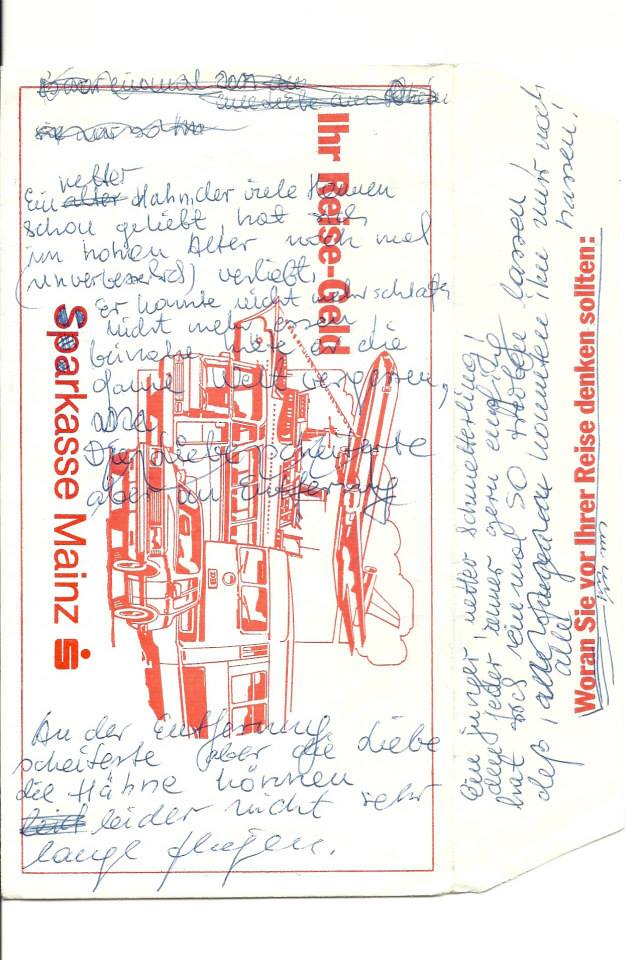 Es war einmal
netter
Ein alter Hahn, der viele Hennen
schon geliebt hat sich
im hohen Alter noch mal
(unverbesserlich) verliebt.
Er konnte nicht mehr schlafen
nicht mehr essen
beinahe hätte er die
ganze Welt vergessen,
Die Liebe scheiterte
aber an Entfernung
An der Entfernung
scheiterte aber die Liebe
die Hähne können
leider nicht sehr
lange fliegen.
Ihr Reise-Geld
Sparkasse Mainz
DB
Ein junger netter Schmetterling!
den jeder immer gern empfing
hat sich einmal so treiben lassen
daß, konnten ihn nur noch
alle hassen!
Woran Sie vor Ihrer Reise denken sollten: